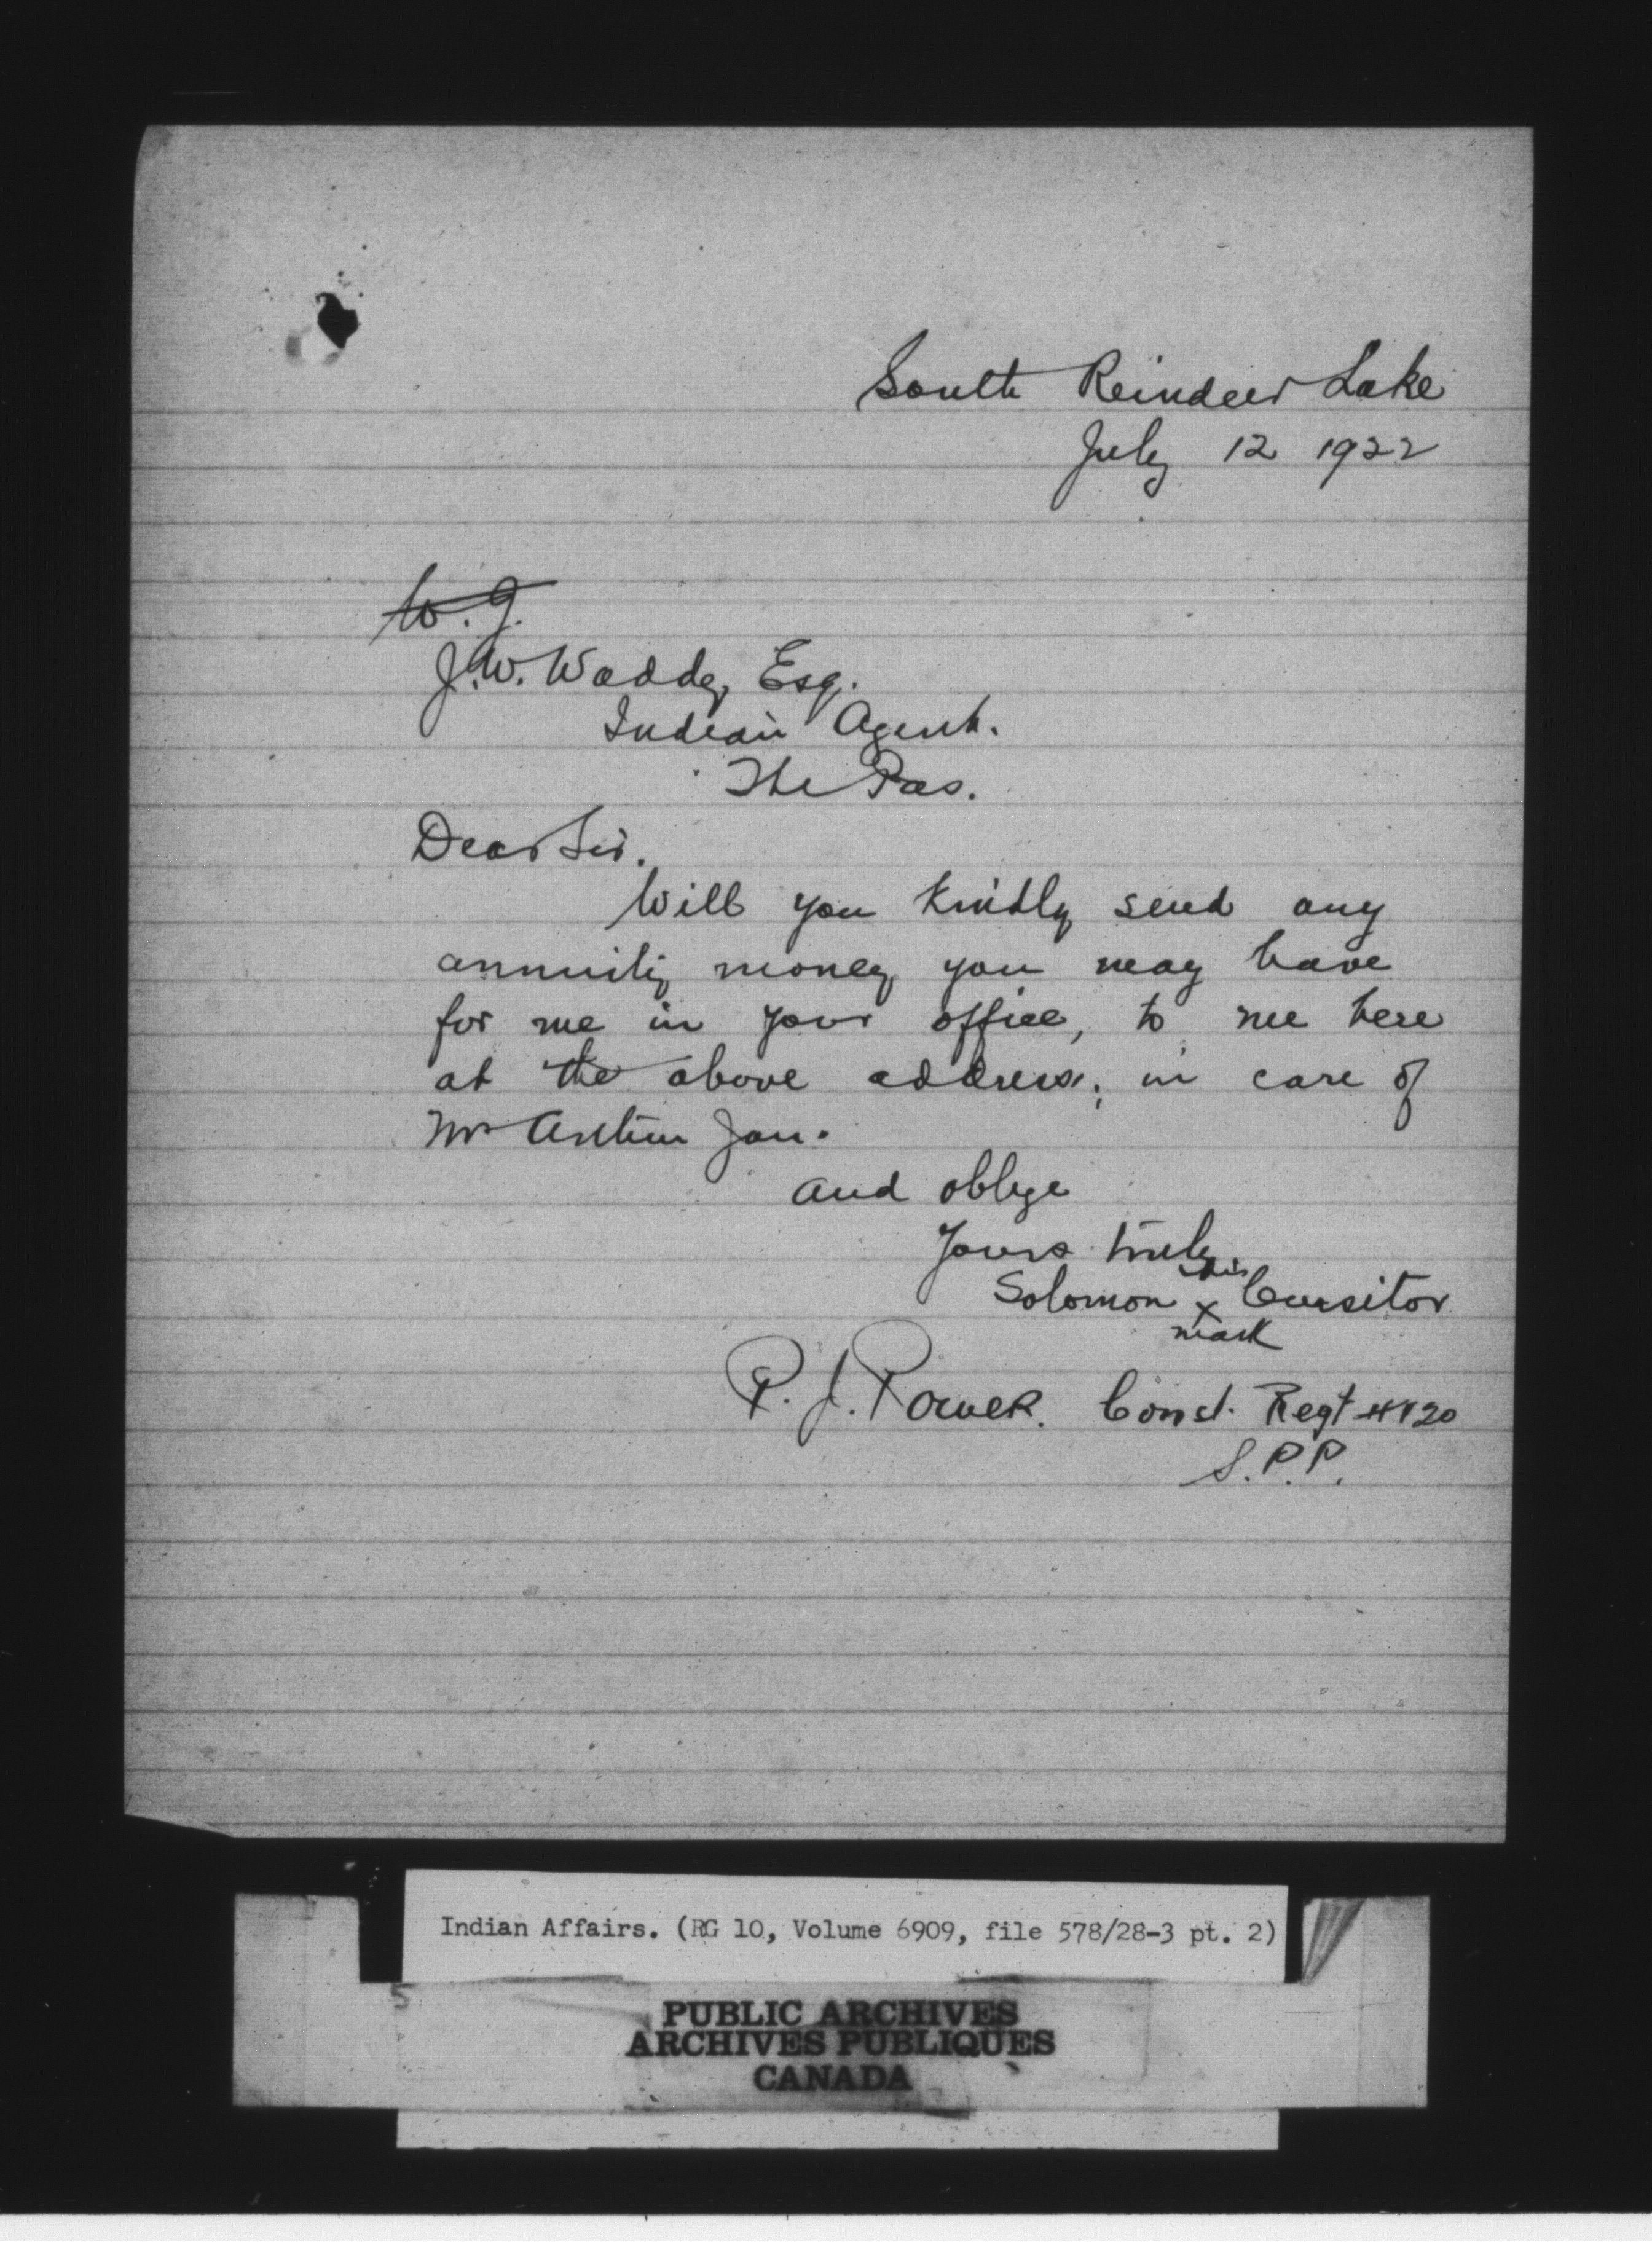 South Reindeer Lake
July 12 1922
W. J.
J. W. Waddy, Esq.
Indian Agent.
The Pas.
Dear Sir.
Will you kindly send any
annuity money you may have
for me in your office, to me here
at the above address; in care of
Mr Arthur Jan.
and oblige
Yours truly.
his
Solomon x Cursitor
mark
P. J. Power. Const. Regt #120
S.P.P.
Indian Affairs. (RG 10, Volume 6909, file 578/28-3 pt. 2)
5
PUBLIC ARCHIVES
ARCHIVES PUBLIQUES
CANADA